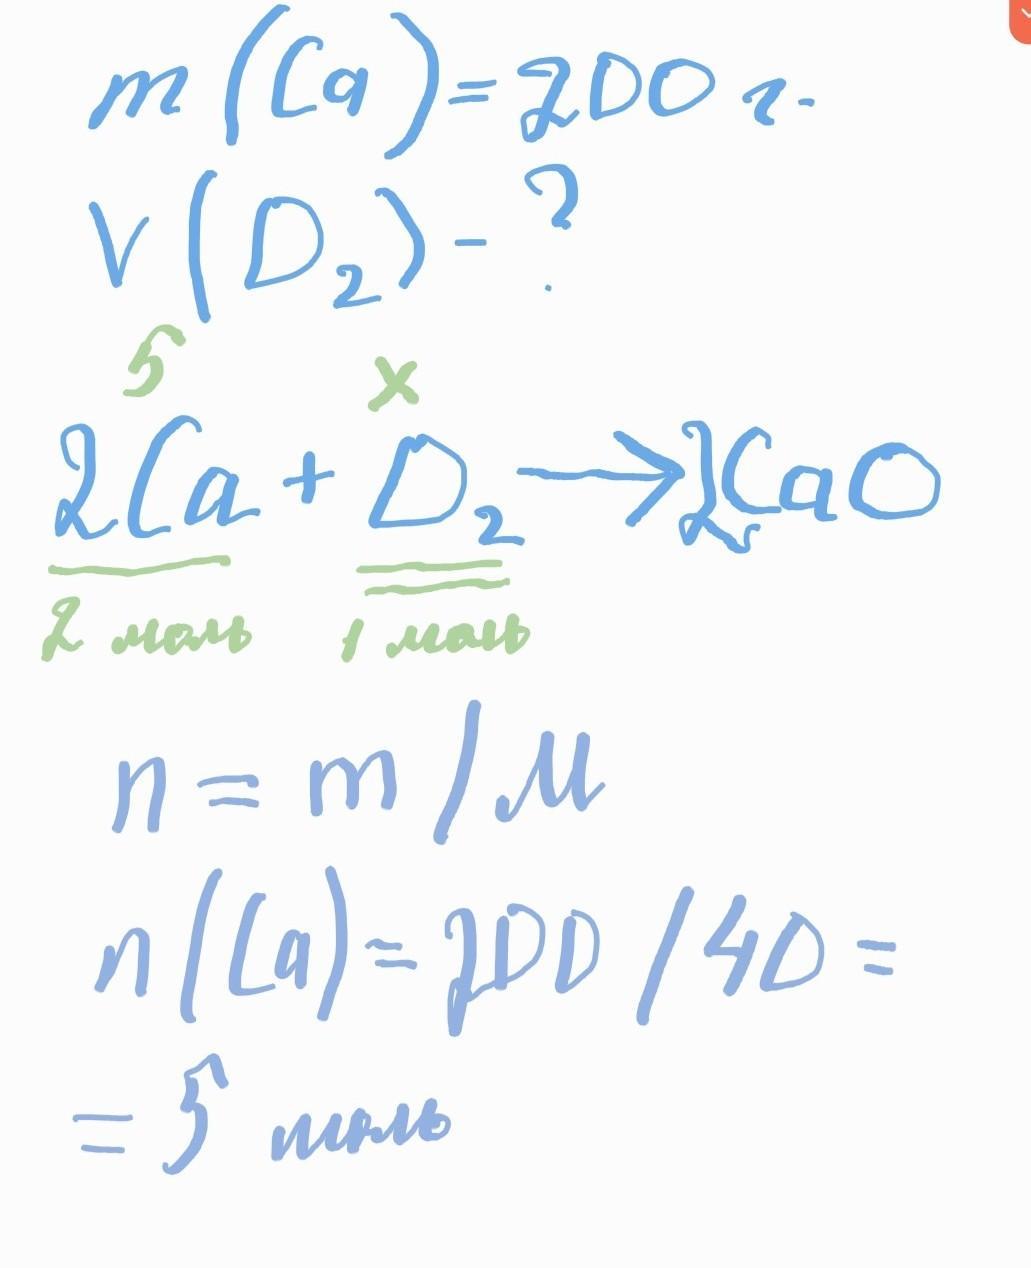 m(Ca)=200 г.
V(O₂)-?
5 x
2Ca + O₂ → 2CaO
2 моль 1 моль
n = m / M
n(Ca) = 200 / 40 =
= 5 моль